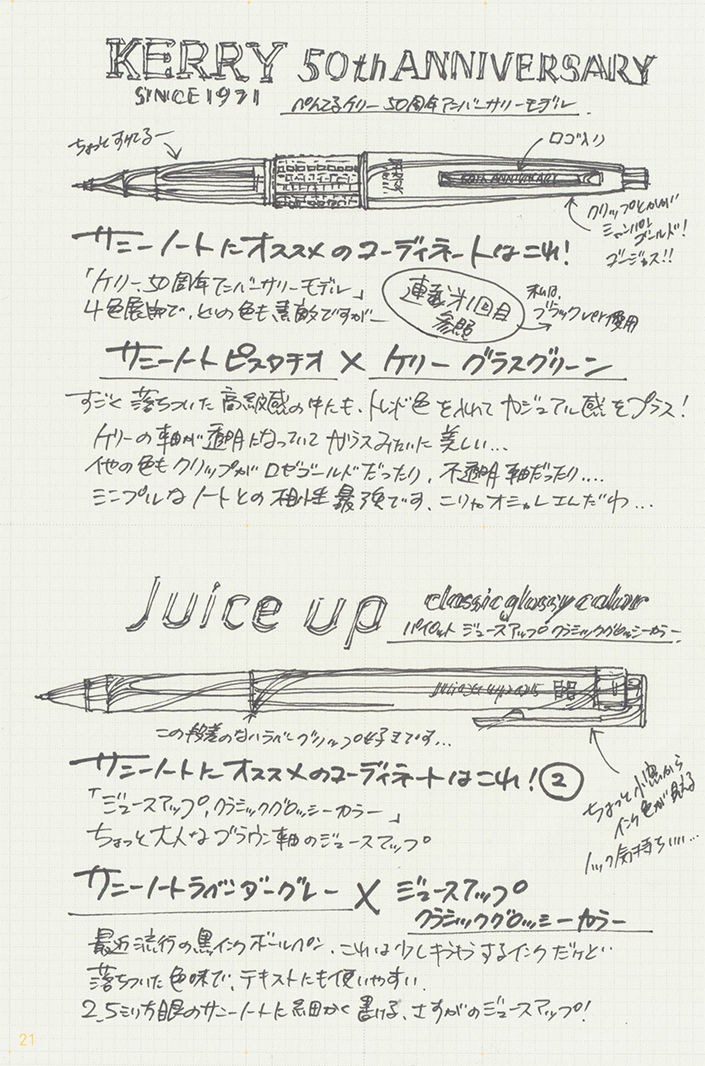 KERRY 50th ANNIVERSARY
SINCE 1971
ぺんてるケリー50周年アニバーサリーモデル
ちょっとすけてるー
ロゴ入り
KERRY
50th ANNIVERSARY
クリップとかが
シャンパン
ゴールド!
ゴージャス!!
サニーノートにオススメのコーディネートはこれ!
「ケリー50周年アニバーサリーモデル」
4色展開で、どの色も素敵ですがー
連載第1回目
参照
私は、
ブラックver使用
サニーノートピスタチオ×ケリー グラスグリーン
すごく落ちついた高級感の中にも、トレンド色を入れてカジュアル感をプラス!
ケリーの軸が透明になっていてガラスみたいに美しい…
他の色もクリップがロゼゴールドだったり、不透明軸だったり….
シンプルなノートとの相性最強です、こりゃオシャレなんだわ…
Juice up classic glossy color
パイロット ジュースアップ クラシックグロッシーカラー
この段差のないラバーグリップ好きです…
サニーノートにオススメのコーディネートはこれ!②
「ジュースアップ、クラシックグロッシーカラー」
ちょっと大人なブラウン軸のジュースアップ
ちょっと小窓から
インク色が見える
ノック気持ちいい…
サニーノートラベンダーグレー×ジュースアップ
クラシックグロッシーカラー
最近流行の黒インクボールペン、これは少しキラキラするインクだけど…
落ちついた色味で、テキストにも使いやすい.
2.5ミリ方眼のサニーノートに細かく書ける、さすがのジュースアップ!
21